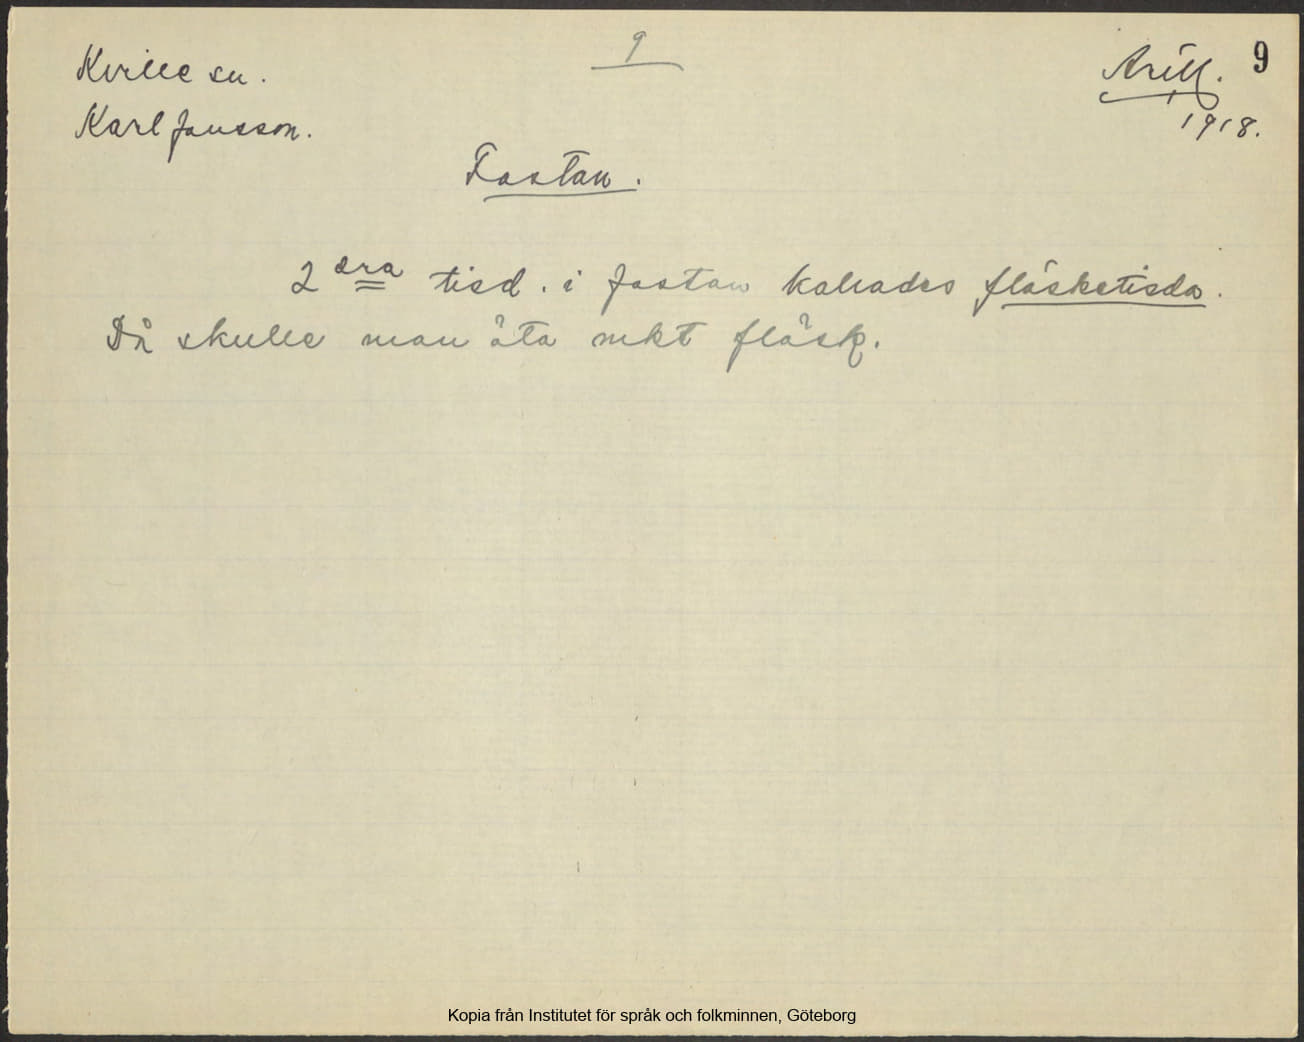 9
Kville sn.
Arill. 9
1918.
Karl Jansson.
Fastan.
2 dra tisd. i fastan kallades fläsketisda.
Då skulle man äta mkt fläsk.
Kopia från Institutet för språk och folkminnen, Göteborg